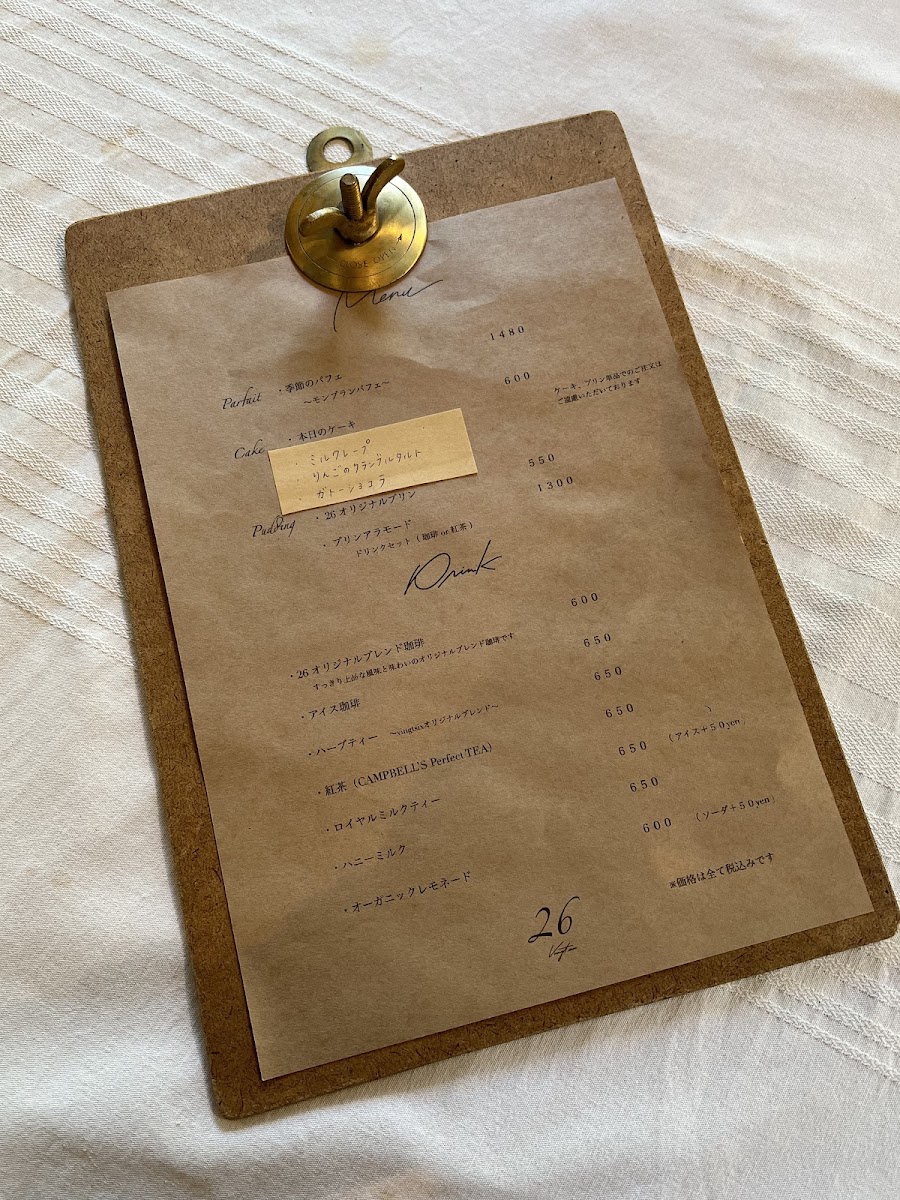 Menu
Parfait ・季節のパフェ 1480
〜モンブランパフェ〜
Cake ・本日のケーキ 600
ケーキ、プリン単品でのご注文は
ご遠慮いただいております
・ミルクレープ
・りんごのクランブルタルト
・ガトーショコラ
Pudding ・26オリジナルプリン 550
・プリンアラモード 1300
ドリンクセット（珈琲 or 紅茶）
Drink
・26オリジナルブレンド珈琲 600
すっきり上品な風味と味わいのオリジナルブレンド珈琲です
・アイス珈琲 650
・ハーブティー 〜vingtsixオリジナルブレンド〜 650
・紅茶（CAMPBELL'S Perfect TEA） 650
・ロイヤルミルクティー 650 （アイス+50yen）
・ハニーミルク 650
・オーガニックレモネード 600 （ソーダ+50yen）
※価格は全て税込みです
26